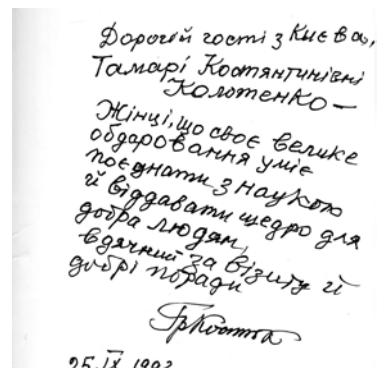 Дорогій гості з Києва,
Тамарі Костянтинівні
Колотенко –
Жінці, що своє велике
обдаровання уміє
поєднати з наукою
й віддавати щедро для
добра людям,
вдячний за візиту й
добрі поради
25.IX.199